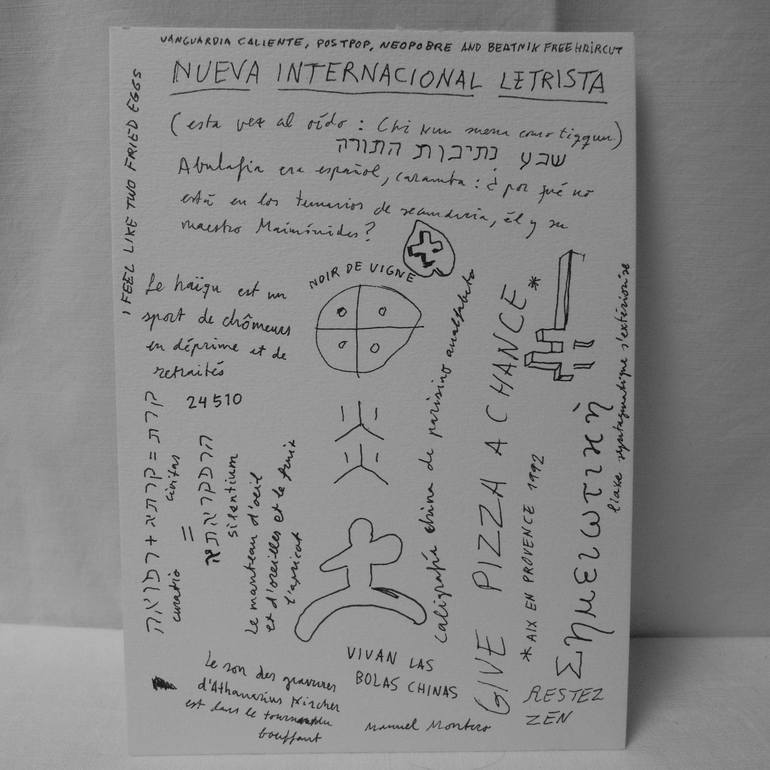 VANGUARDIA CALIENTE, POSTPOP, NEOPOBRE AND BEATNIK FREE HAIRCUT
NUEVA INTERNACIONAL LETRISTA
(esta vez al oído: Chi Nun suena como tiqqun)
שבע נתיבות התורה
Abulafia era español, caramba: ¿por qué no
está en los temarios de secundaria, él y su
maestro Maimónides?
I FEEL LIKE TWO FRIED EGGS
Le haïqu est un
sport de chômeurs
en déprime et de
retraités
24510
NOIR DE VIGNE
קרת = קרתא + רפואה
civitas
curatio
הרפקראתא
=
silentium
Le manteau d'oeil
et d'oreilles et le fruit
l'apricot
caligrafía china de parisino analfabeto
GIVE PIZZA A CHANCE *
* AIX EN PROVENCE 1992
Σημειωτικὴ
l'axe syntagmatique s'extériorise
Le son des gravures
d'Athanasius Kircher
est dans le
bouffant
VIVAN LAS
BOLAS CHINAS
Manuel Montero
RESTEZ
ZEN